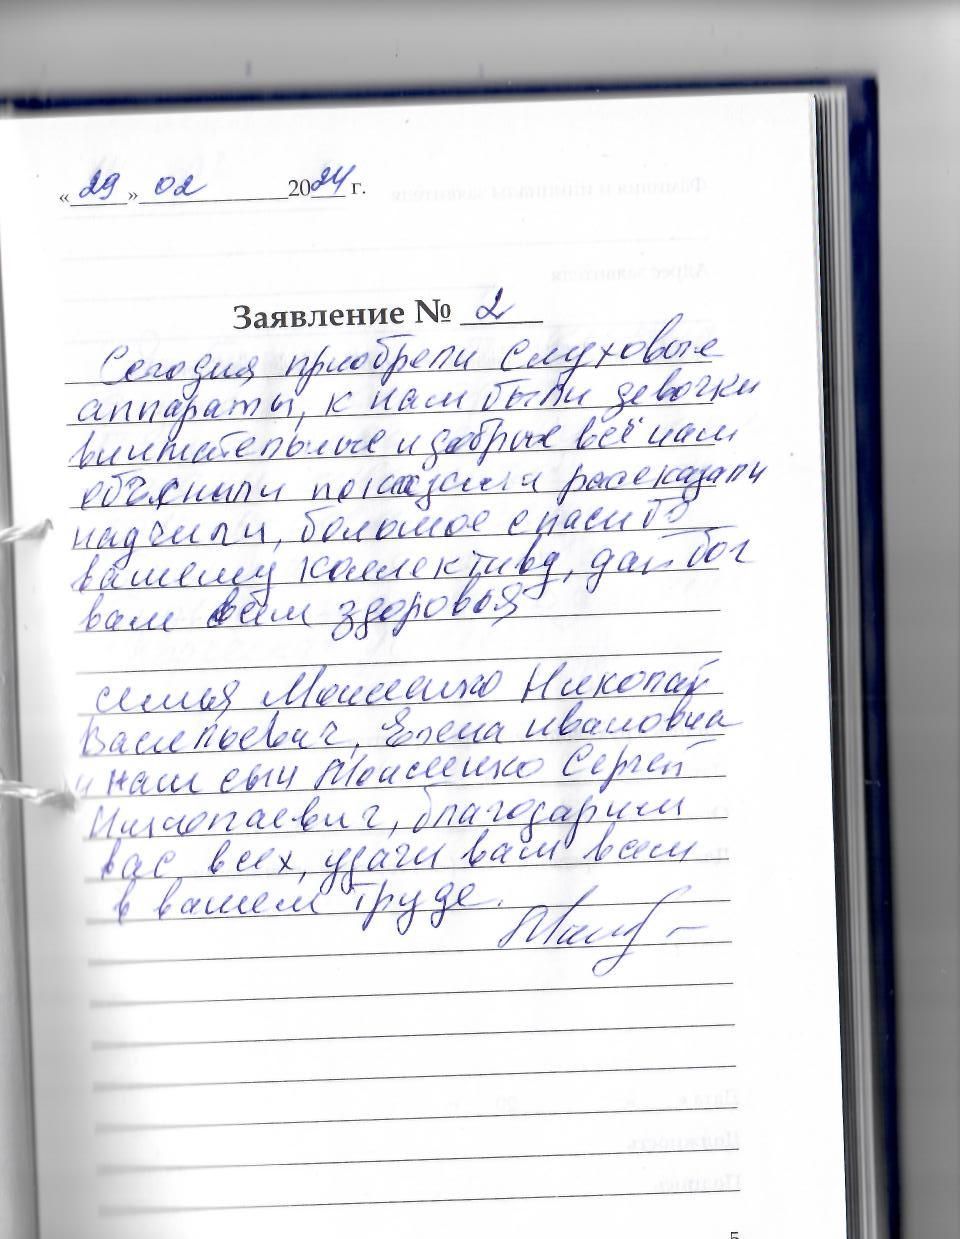 «29» 02 2024 г.
Заявление № 2
Сегодня приобрели слуховые
аппараты, к нам были девочки
внимательные и добрые всё нам
объяснили показали и рассказали
надчили, боломое спасибо
вашему коллективу, дай бог
вам всем здоровья
семья Моисеенко Николай
Васильевич, Елена ивановна
и наш сын Моисеенко Сергей
Николаевич, благодарим
вас всех, удачи вам всем
в вашем труде.
5